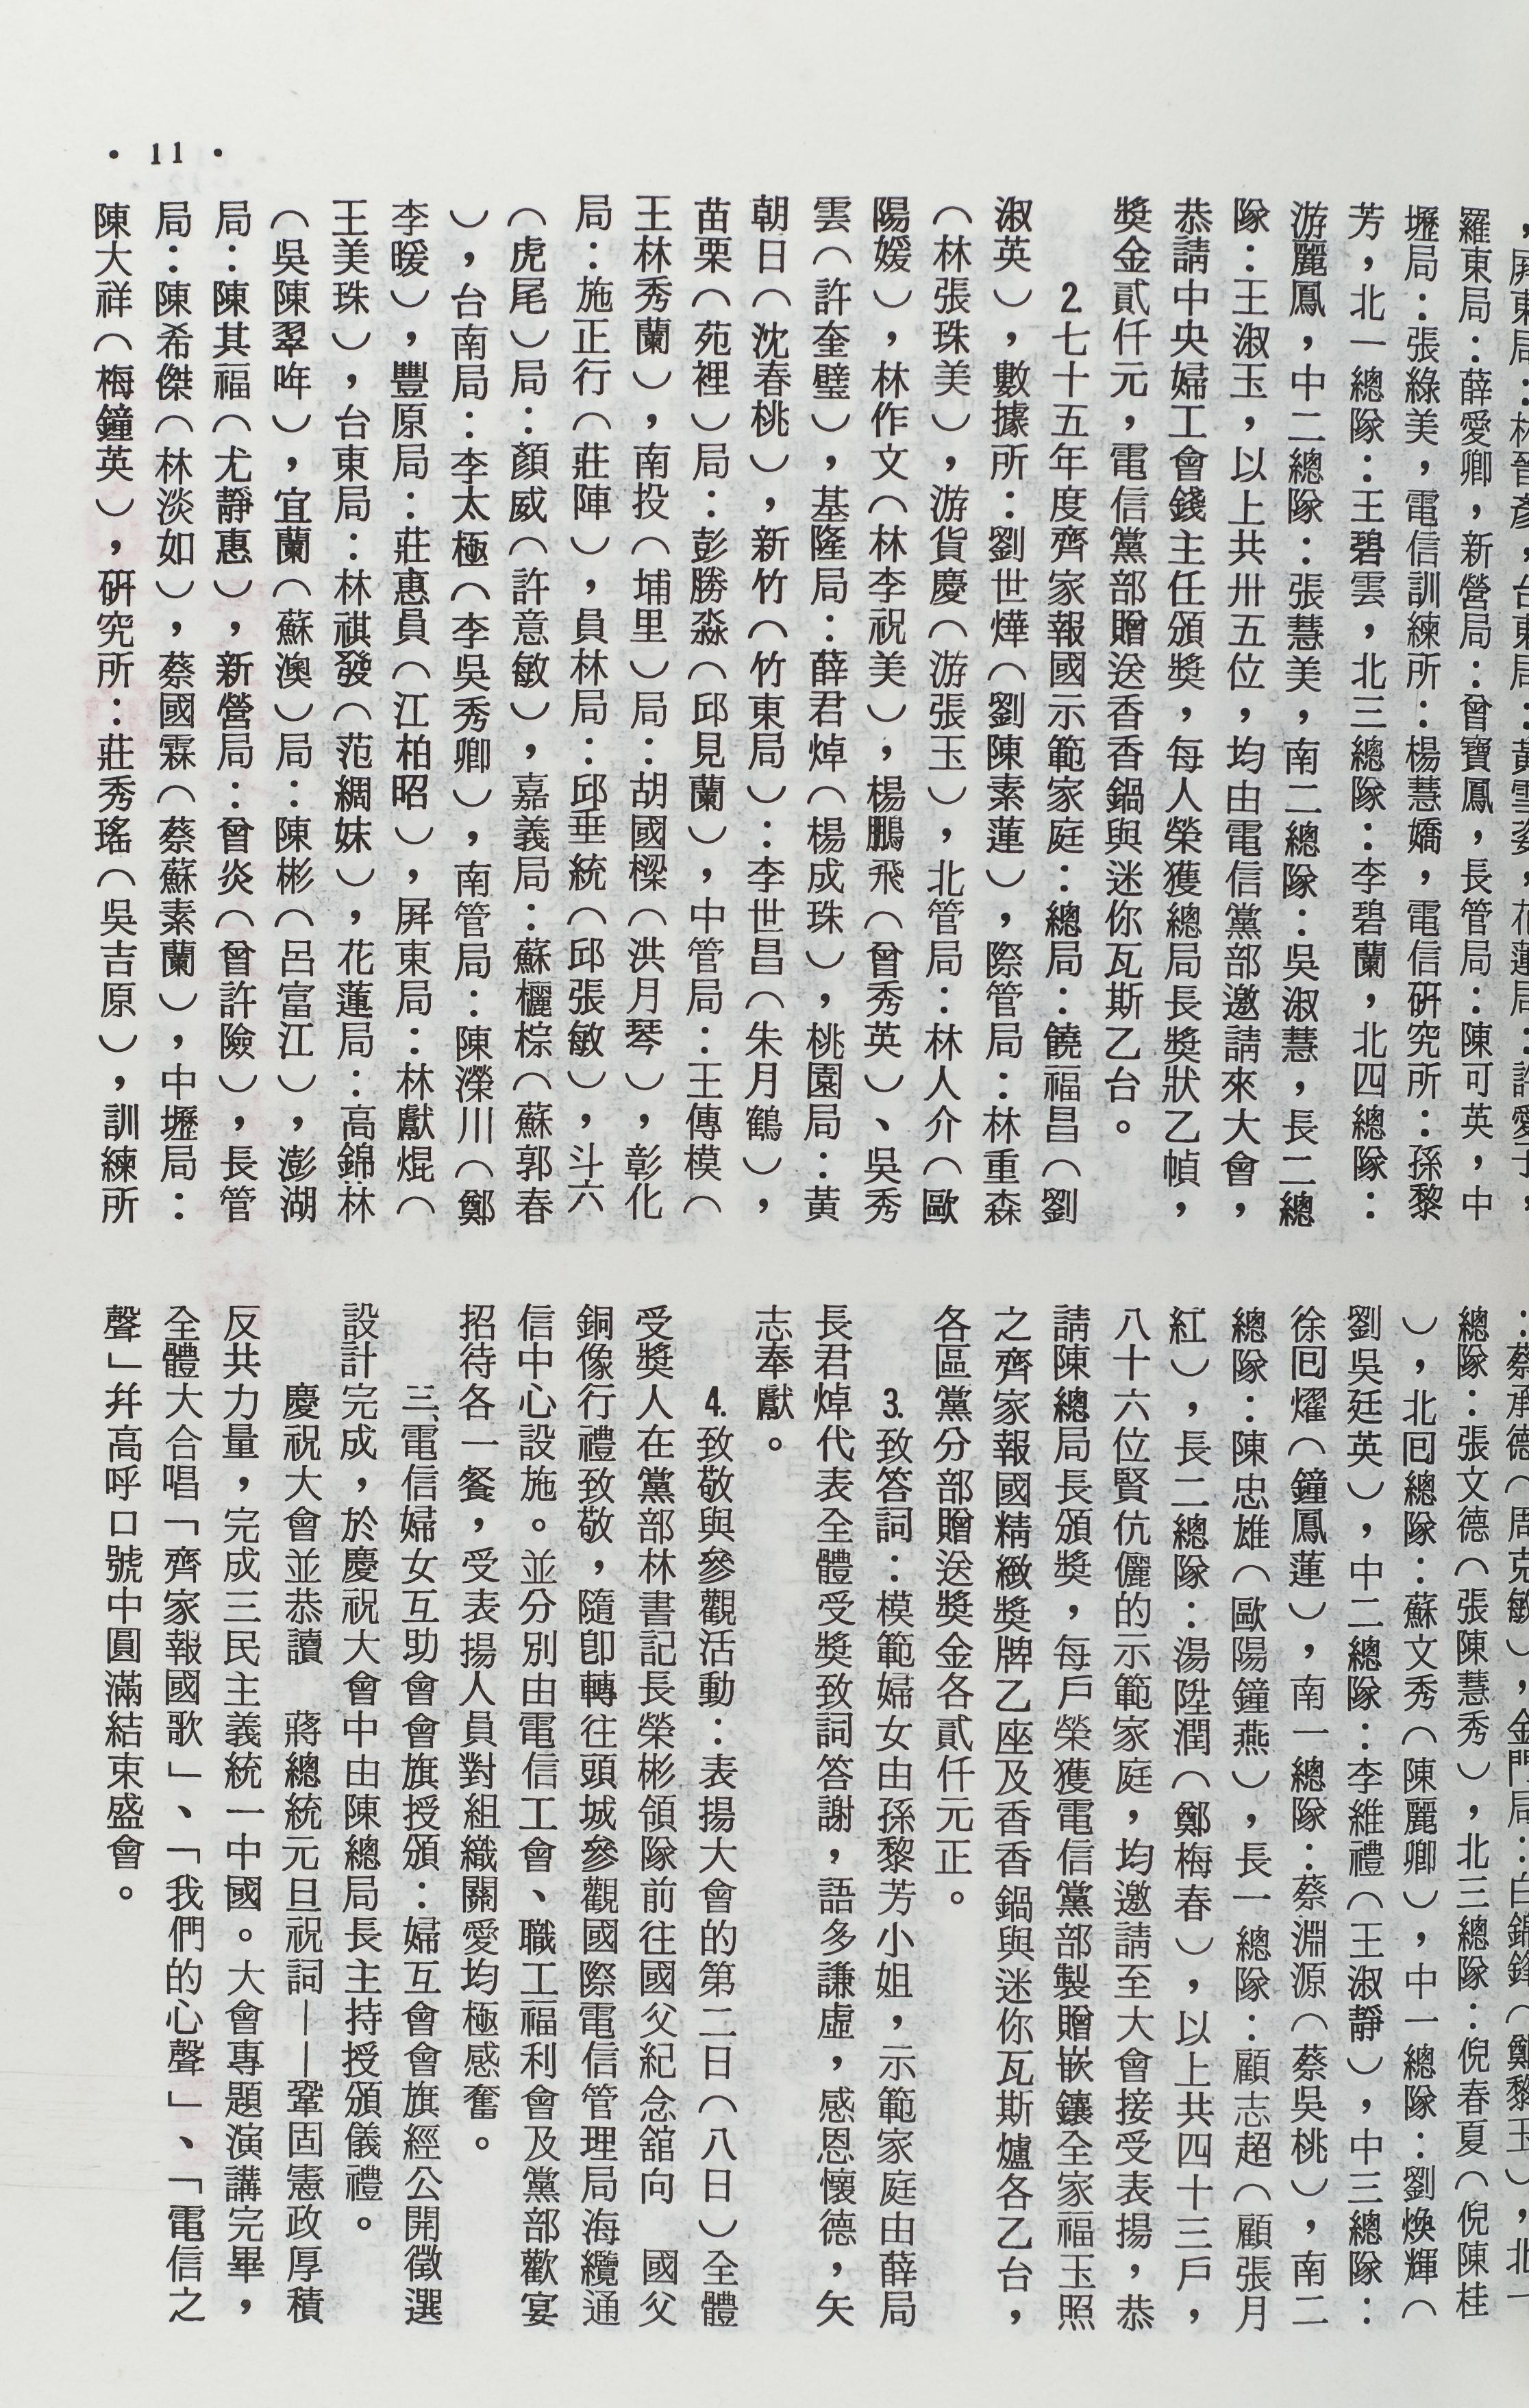 ，屏東局：林晉彥，台東局：黃雪姿，花蓮局：許愛子，
羅東局：薛愛卿，新營局：曾寶鳳，長管局：陳可英，中
壢局：張綠美，電信訓練所：楊慧嬌，電信硏究所：孫黎
芳，北一總隊：王碧雲，北三總隊：李碧蘭，北四總隊：
游麗鳳，中二總隊：張慧美，南二總隊：吳淑慧，長二總
隊：王淑玉，以上共卅五位，均由電信黨部邀請來大會，
恭請中央婦工會錢主任頒獎，每人榮獲總局長獎狀乙幀，
獎金貳仟元，電信黨部贈送香香鍋與迷你瓦斯乙台。
2.七十五年度齊家報國示範家庭：總局：饒福昌（劉
淑英），數據所：劉世燁（劉陳素蓮），際管局：林重森
（林張珠美），游貨慶（游張玉），北管局：林人介（歐
陽媛），林作文（林李祝美），楊鵬飛（曾秀英）、吳秀
雲（許奎璧），基隆局：薛君焯（楊成珠），桃園局：黃
朝日（沈春桃），新竹（竹東局）：李世昌（朱月鶴），
苗栗（苑裡）局：彭勝淼（邱見蘭），中管局：王傳模（
王林秀蘭），南投（埔里）局：胡國樑（洪月琴），彰化
局：施正行（莊陣），員林局：邱垂統（邱張敏），斗六
（虎尾）局：顏威（許意敏），嘉義局：蘇欐棕（蘇郭春
），台南局：李太極（李吳秀卿），南管局：陳濚川（鄭
李暖），豐原局：莊惠員（江柏昭），屏東局：林獻焜（
王美珠），台東局：林祺發（范綢妹），花蓮局：高錦林
（吳陳翠哖），宜蘭（蘇澳）局：陳彬（呂富江），澎湖
局：陳其福（尤靜惠），新營局：曾炎（曾許險），長管
局：陳希傑（林淡如），蔡國霖（蔡蘇素蘭），中壢局：
陳大祥（梅鐘英），硏究所：莊秀瑤（吳吉原），訓練所
：蔡承德（周克敏），金門局：白錦鋒（鄭黎玉），北一
總隊：張文德（張陳慧秀），北三總隊：倪春夏（倪陳桂
），北囘總隊：蘇文秀（陳麗卿），中一總隊：劉煥輝（
劉吳廷英），中二總隊：李維禮（王淑靜），中三總隊：
徐囘燿（鐘鳳蓮），南一總隊：蔡淵源（蔡吳桃），南二
總隊：陳忠雄（歐陽鐘燕），長一總隊：顧志超（顧張月
紅），長二總隊：湯陞潤（鄭梅春），以上共四十三戶，
八十六位賢伉儷的示範家庭，均邀請至大會接受表揚，恭
請陳總局長頒獎，每戶榮獲電信黨部製贈嵌鑲全家福玉照
之齊家報國精緻獎牌乙座及香香鍋與迷你瓦斯爐各乙台，
各區黨分部贈送獎金各貳仟元正。
3.致答詞：模範婦女由孫黎芳小姐，示範家庭由薛局
長君焯代表全體受獎致詞答謝，語多謙虛，感恩懷德，矢
志奉獻。
4.致敬與參觀活動：表揚大會的第二日（八日）全體
受獎人在黨部林書記長榮彬領隊前往國父紀念舘向　國父
銅像行禮致敬，隨卽轉往頭城參觀國際電信管理局海纜通
信中心設施。並分別由電信工會、職工福利會及黨部歡宴
招待各一餐，受表揚人員對組織關愛均極感奮。
三、電信婦女互助會會旗授頒：婦互會會旗經公開徵選
設計完成，於慶祝大會中由陳總局長主持授頒儀禮。
慶祝大會並恭讀　蔣總統元旦祝詞——鞏固憲政厚積
反共力量，完成三民主義統一中國。大會專題演講完畢，
全體大合唱「齊家報國歌」、「我們的心聲」、「電信之
聲」幷高呼口號中圓滿結束盛會。
・11・